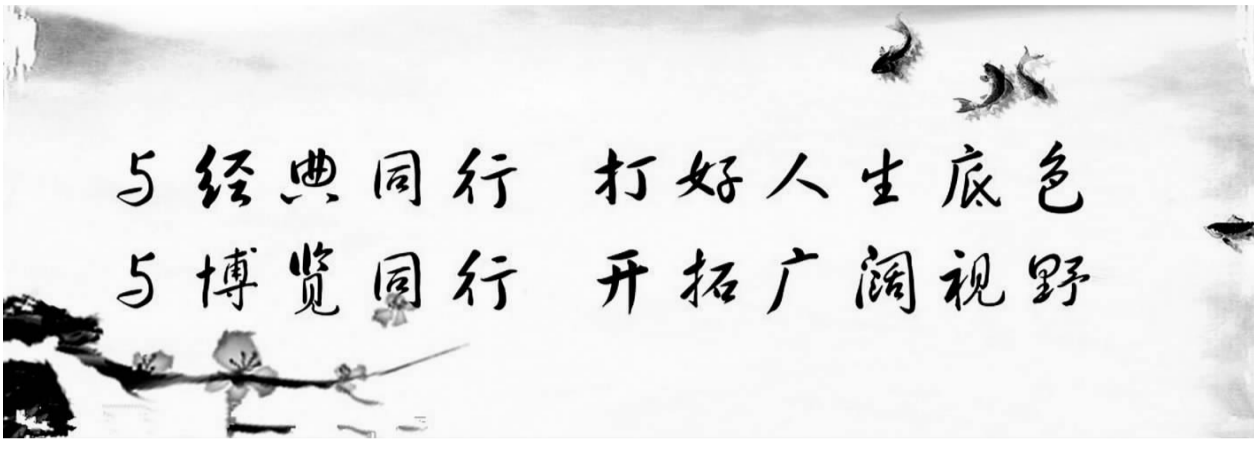 与经典同行 打好人生底色
与博览同行 开拓广阔视野